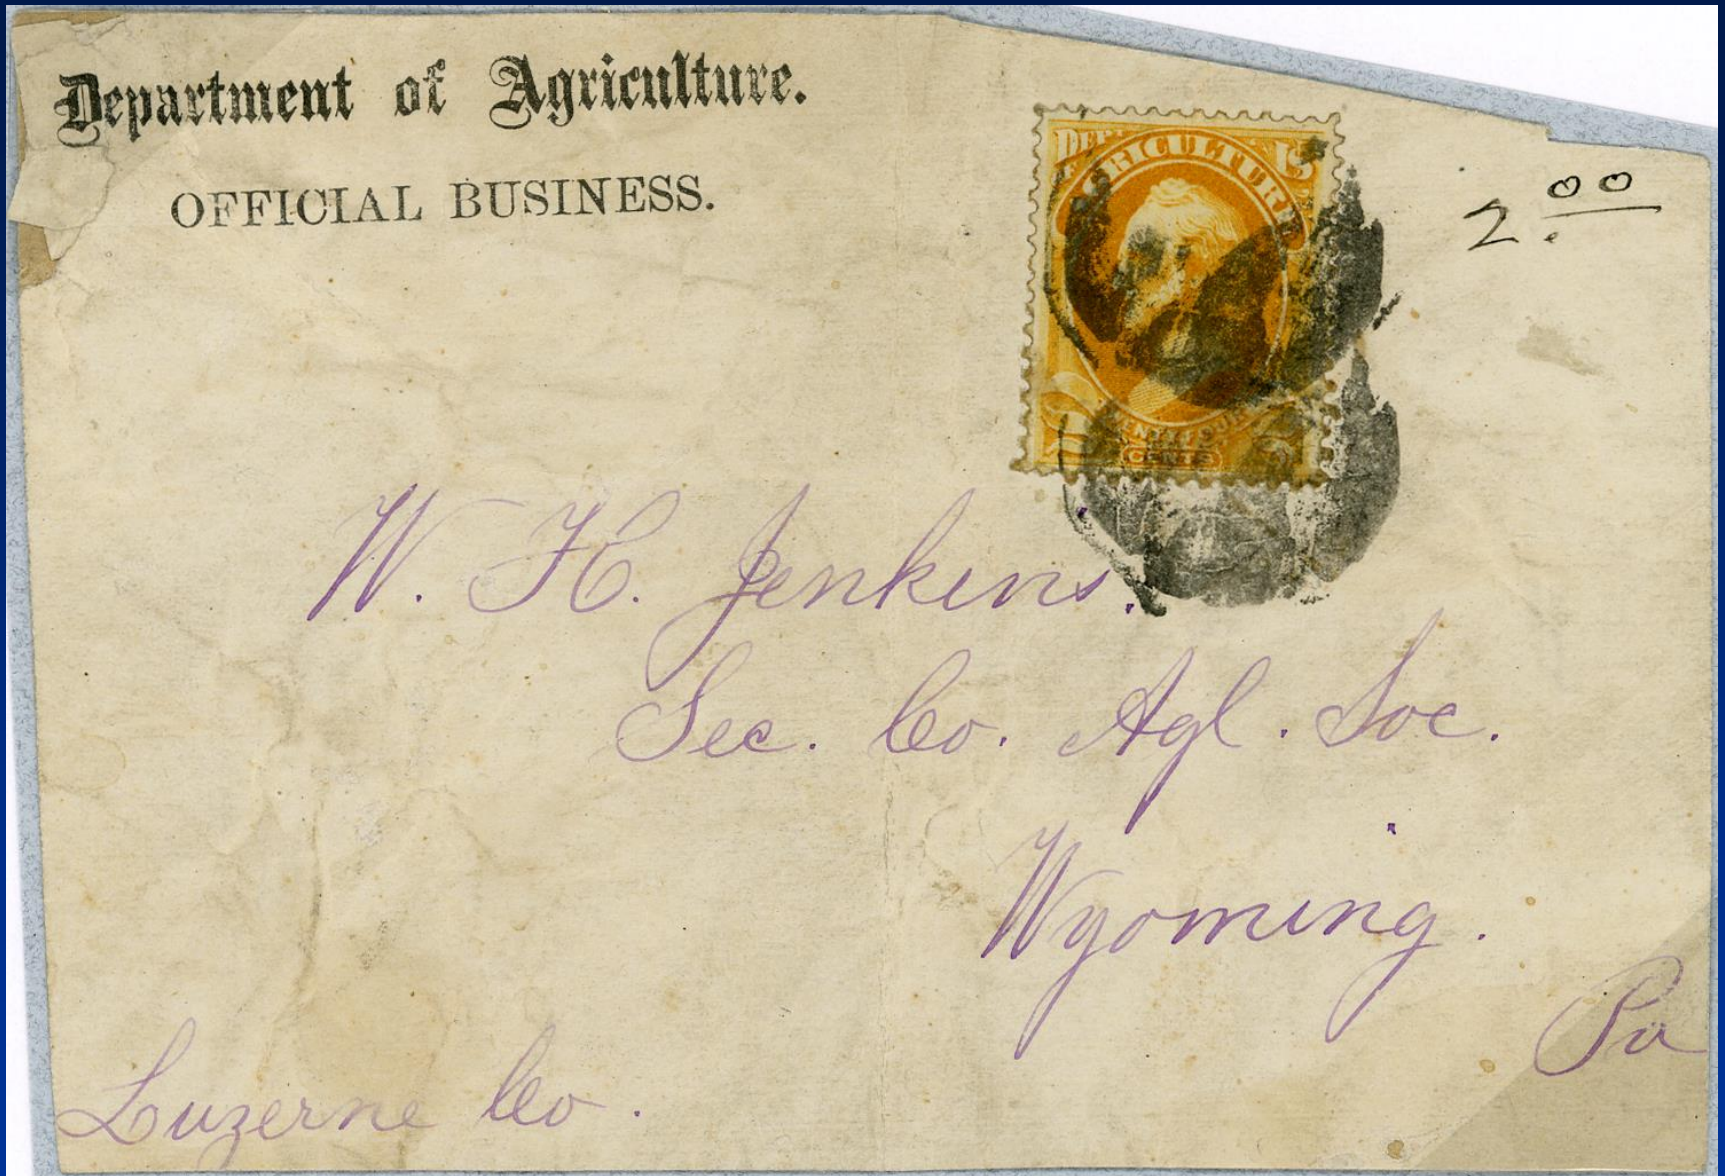 Department of Agriculture.
OFFICIAL BUSINESS.
DEPT. OF AGRICULTURE U.S.
TWENTY FOUR
CENTS
2.00
W. H. Jenkins.
Sec. Co. Agl. Soc.
Wyoming.
Pa
Luzerne Co.